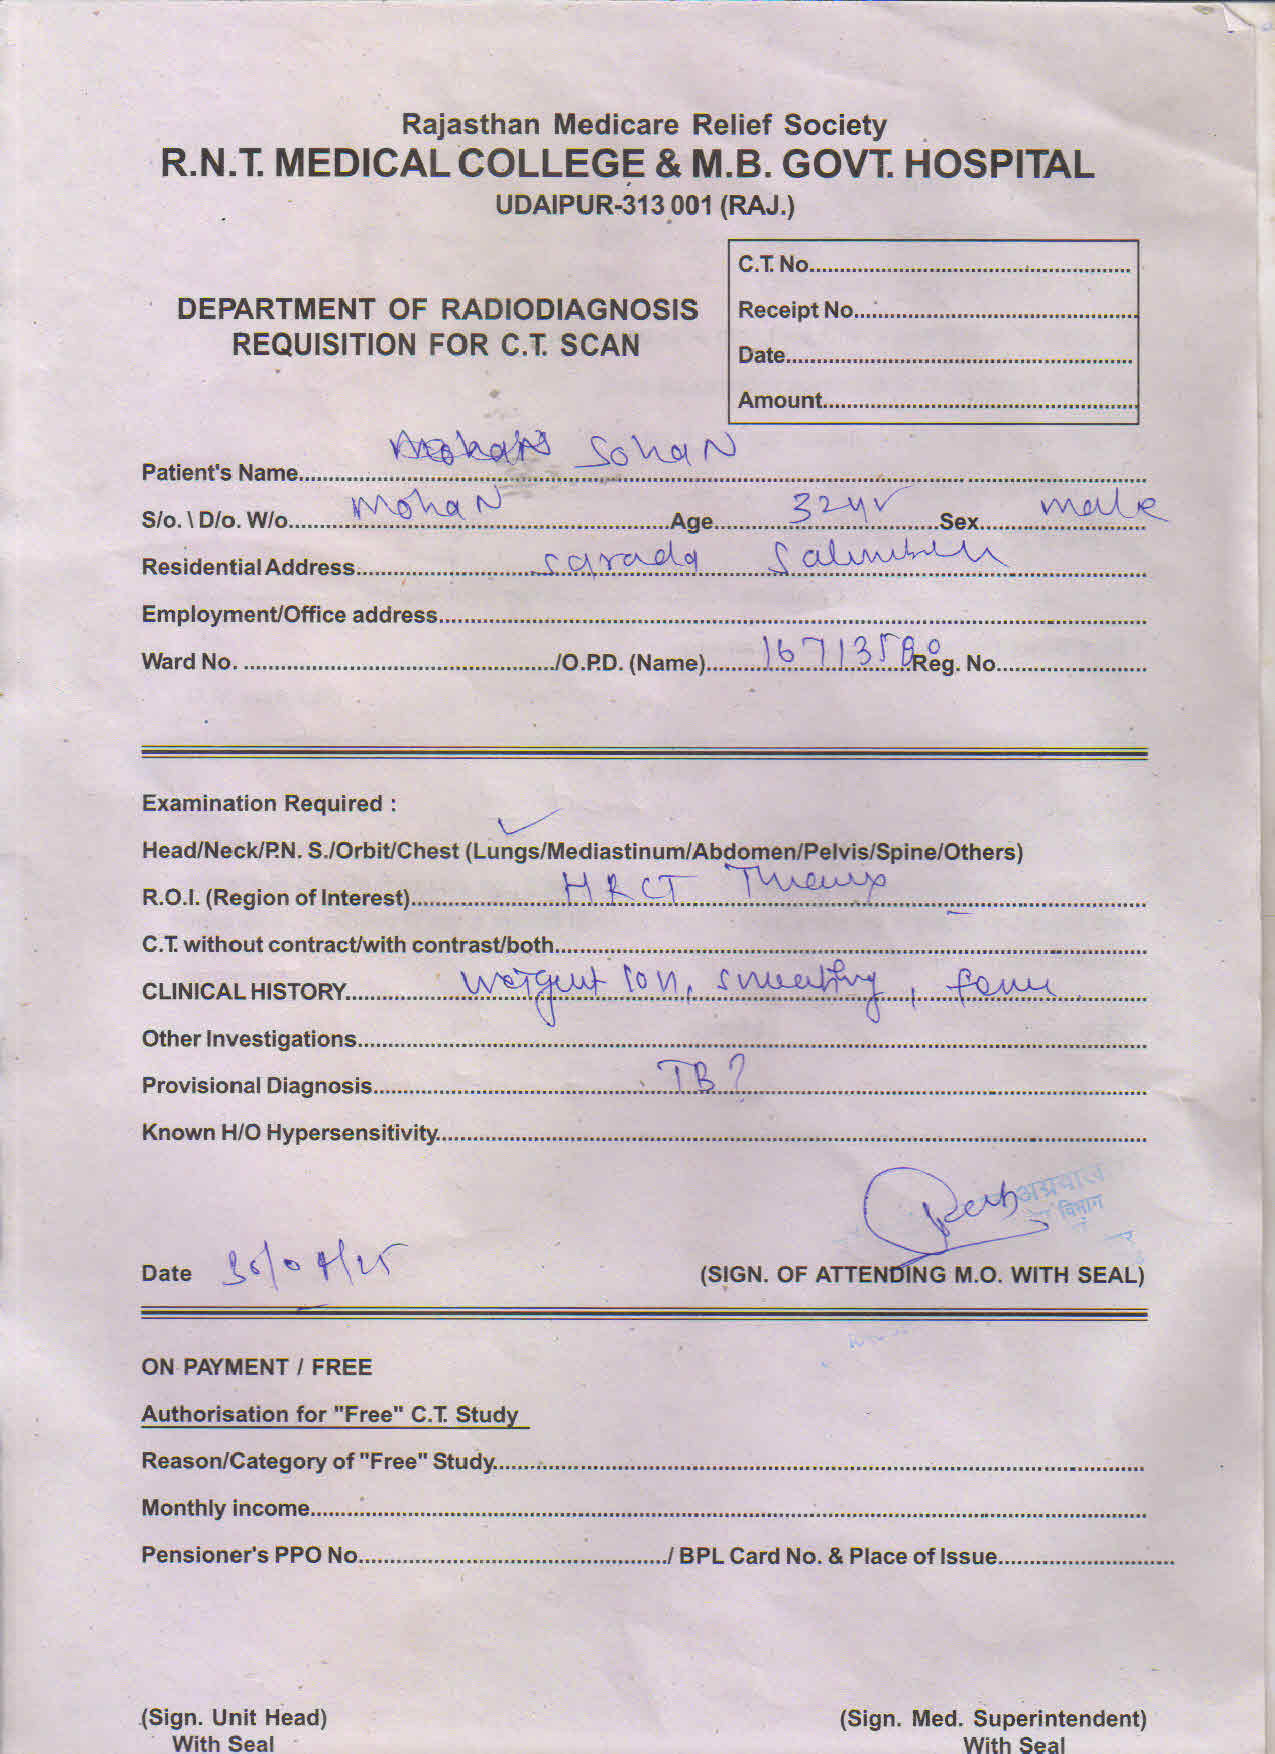 Rajasthan Medicare Relief Society
R.N.T. MEDICAL COLLEGE & M.B. GOVT. HOSPITAL
UDAIPUR-313 001 (RAJ.)
C.T. No.
DEPARTMENT OF RADIODIAGNOSIS
Receipt No.
REQUISITION FOR C.T. SCAN
Date
Amount
Patient's Name Sohan
S/o. \ D/o. W/o. Mohan Age 32yr Sex male
Residential Address Sarada
Employment/Office address
Ward No. /O.P.D. (Name) 16713580 Reg. No.
Examination Required :
Head/Neck/P.N. S./Orbit/Chest (Lungs/Mediastinum/Abdomen/Pelvis/Spine/Others)
R.O.I. (Region of Interest) HRCT
C.T. without contract/with contrast/both
CLINICAL HISTORY
Other Investigations
Provisional Diagnosis TB?
Known H/O Hypersensitivity
अग्रवाल
विभाग
Date
(SIGN. OF ATTENDING M.O. WITH SEAL)
ON PAYMENT / FREE
Authorisation for "Free" C.T. Study
Reason/Category of "Free" Study
Monthly income
Pensioner's PPO No. / BPL Card No. & Place of Issue
(Sign. Unit Head) (Sign. Med. Superintendent)
With Seal With Seal